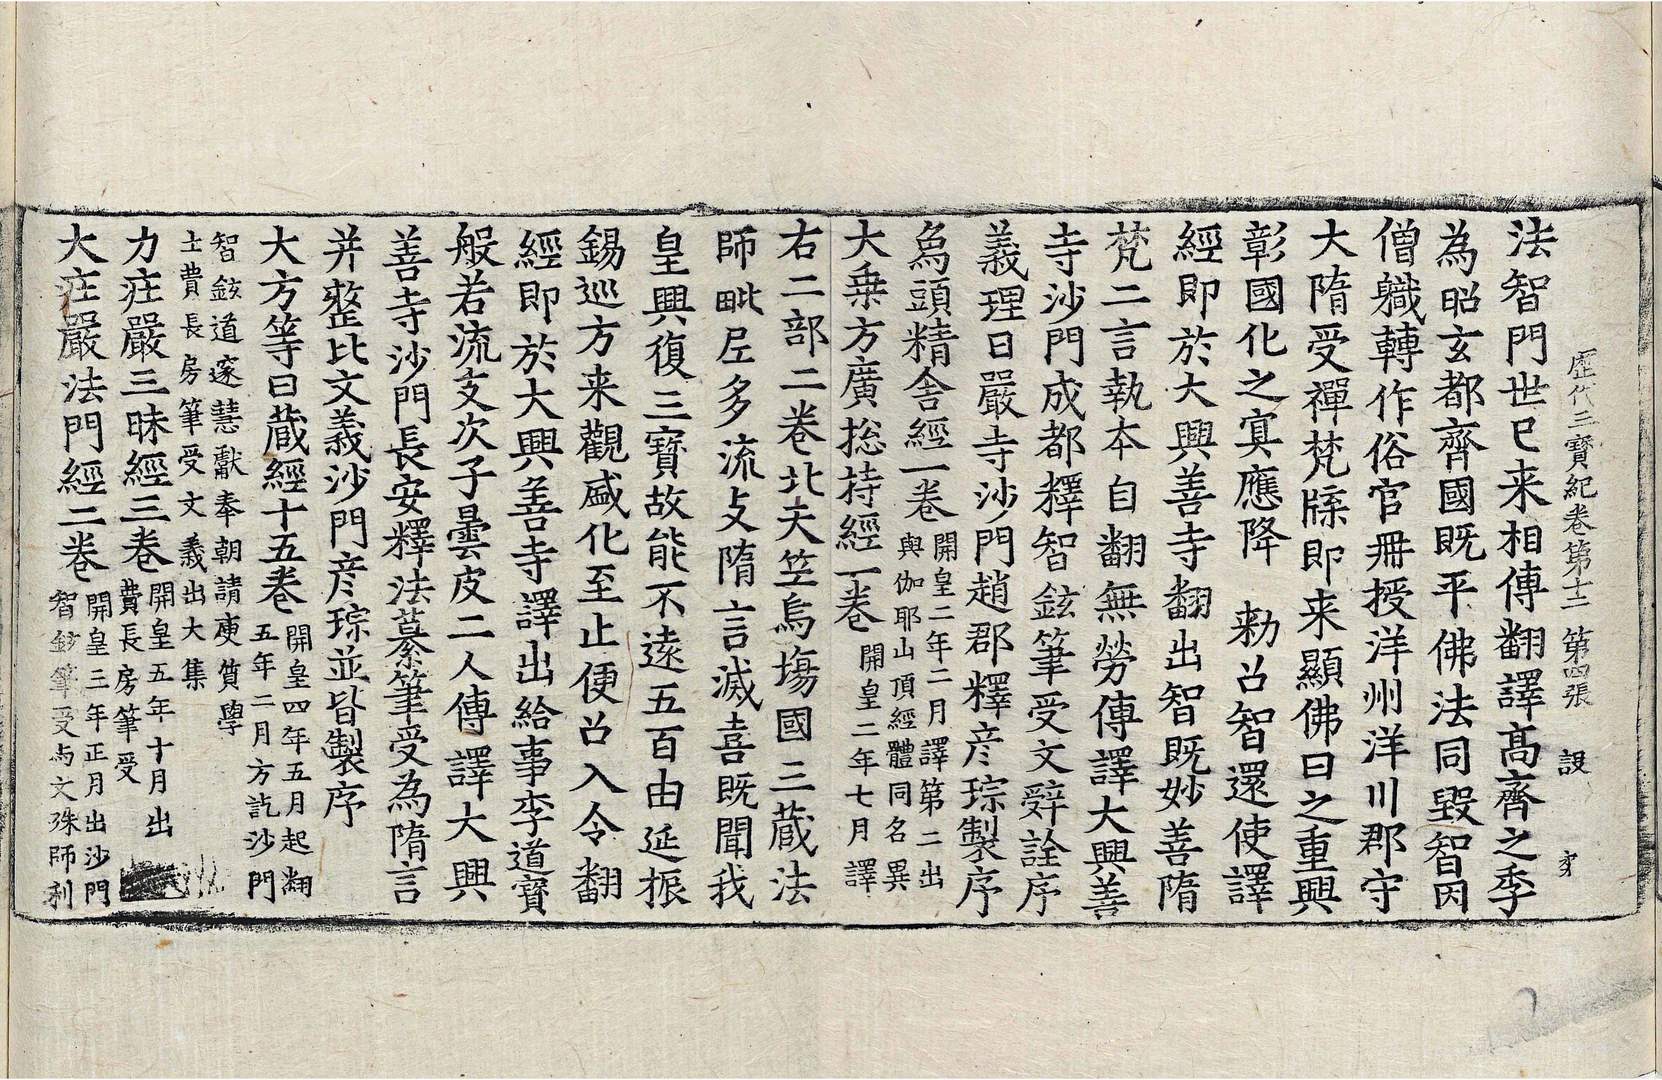 歷代三寶紀卷第十二 第四張 設
法智門世已来相傳翻譯髙齊之季
為昭玄都齊國既平佛法同毀智因
僧軄轉作俗官冊授洋州洋川郡守
大隋受禪梵牒即来顯佛日之重興
彰國化之㝠應降 勑召智還使譯
經即於大興善寺翻出智既妙善隋
梵二言執本自翻無勞傳譯大興善
寺沙門成都釋智鉉筆受文辤詮序
義理日嚴寺沙門趙郡釋彦琮製序
烏頭精舎經一卷 開皇二年二月譯第二出
與伽耶山頂經體同名異
大乗方廣捴持經一卷 開皇二年七月譯
右二部二卷北天竺烏塲國三蔵法
師毗𡰱多流支隋言滅喜既聞我
皇興復三寶故能不遠五百由延振
錫巡方来觀盛化至止便召入令翻
經即於大興善寺譯出給事李道寶
般若流支次子曇皮二人傳譯大興
善寺沙門長安釋法纂筆受為隋言
并整比文義沙門彦琮並皆製序
大方等日蔵經十五卷 開皇四年五月起翻
五年二月方訖沙門
智鉉道邃慧獻奉朝請庾質學
士費長房筆受文義出大集
力莊嚴三昧經三卷 開皇五年十月出
費長房筆受
大莊嚴法門經二卷 開皇三年正月出沙門
智鉉筆受与文殊師利